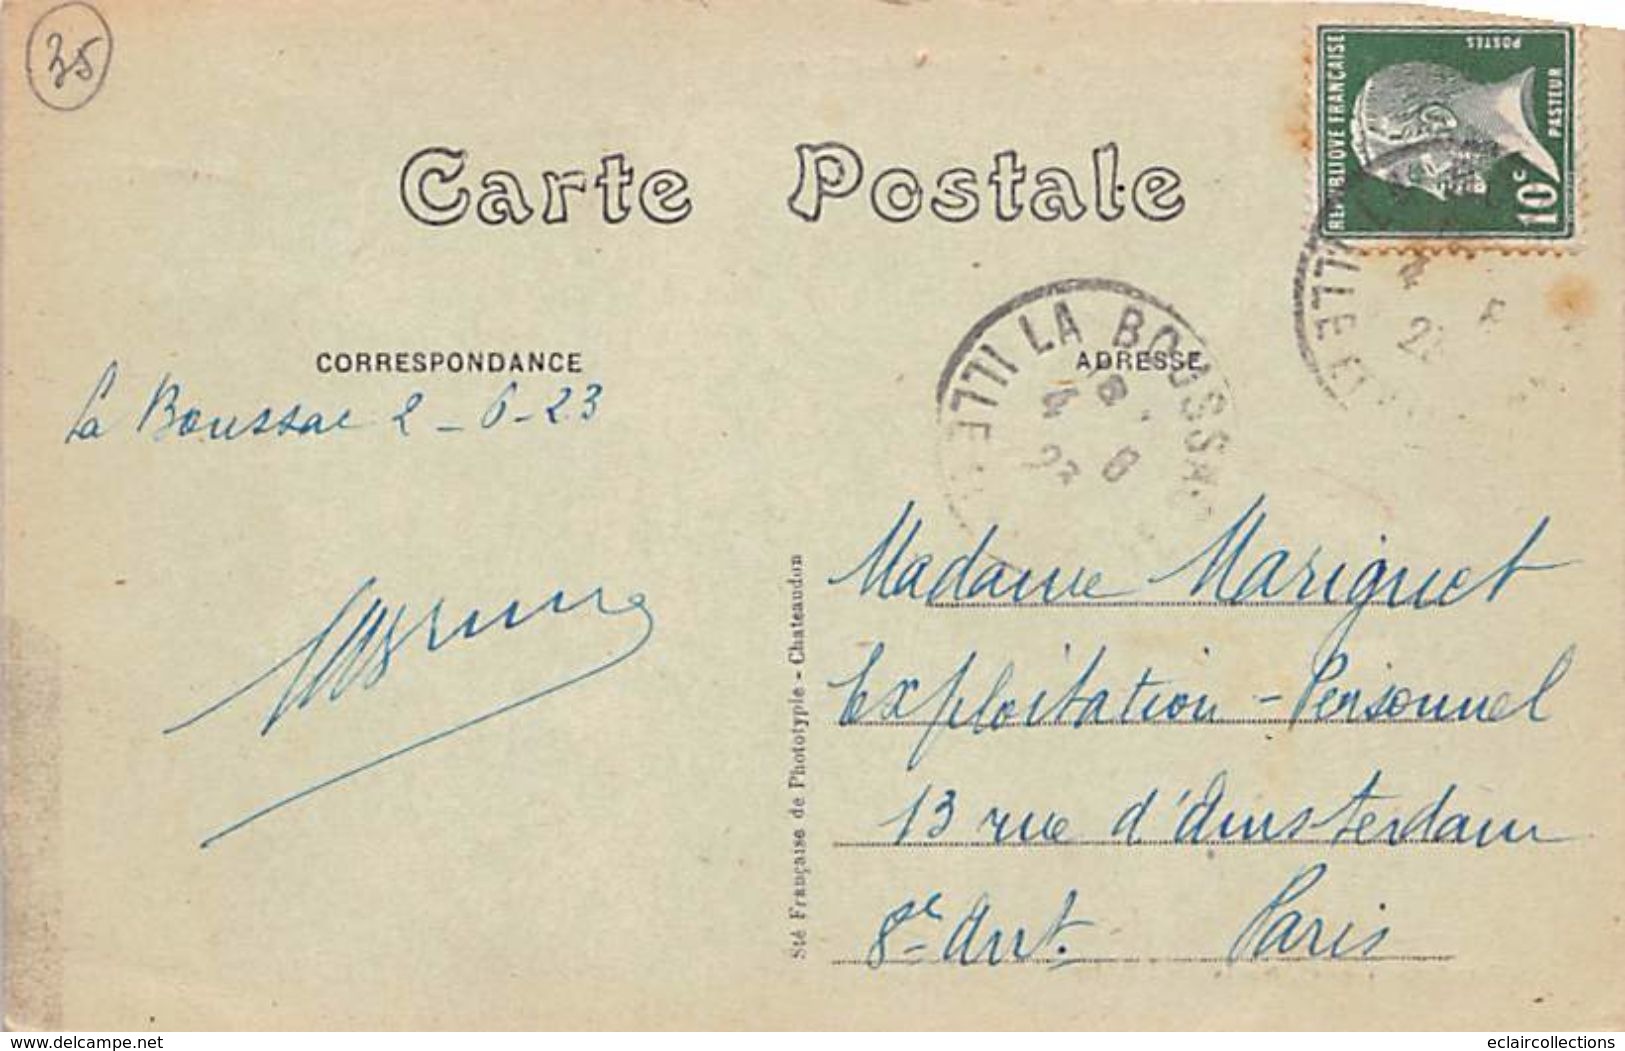 35
REPUBLIQUE FRANÇAISE
POSTES
PASTEUR
10c
Carte Postale
CORRESPONDANCE
ADRESSE
La Boussac 2-6-23
LA BOUSSAC
ILLE
4 6
23
ILLE ET
4 6
Madame Mariguet
Exploitation - Personnel
13 rue d'Amsterdam
8e Arrt. Paris
Sté Française de Phototypie - Chateaudun
https://www.delcampe.net
eclaircollections